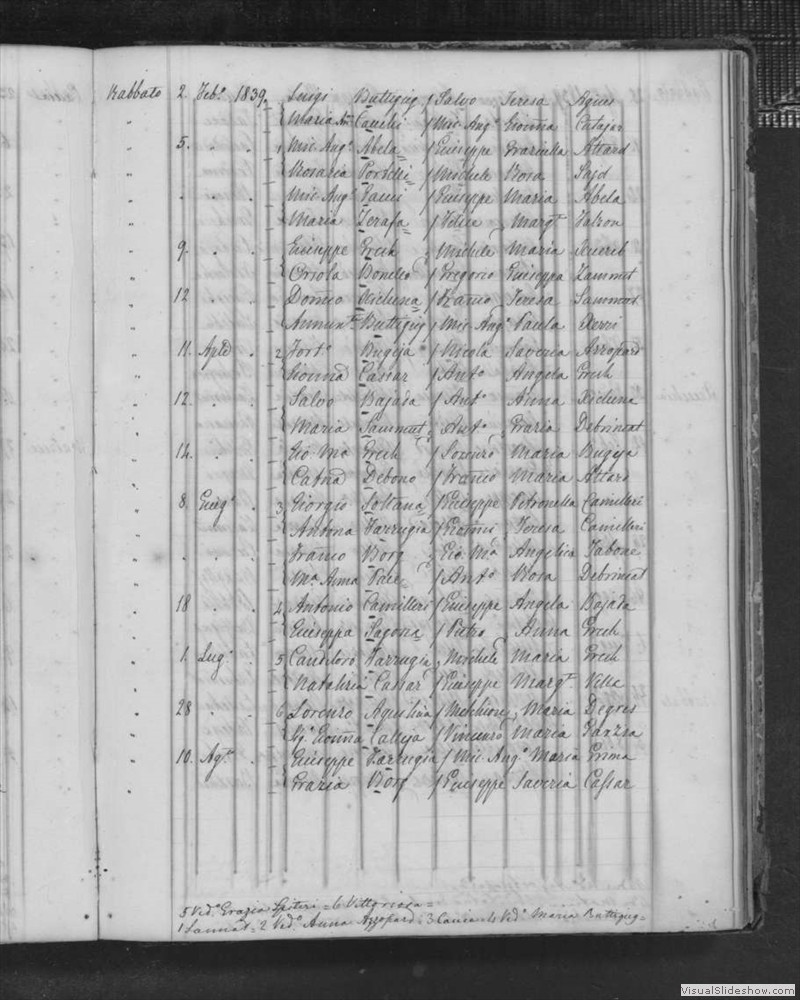 Rabbato 2. Feb.º 1839. Luigi Buttigieg / Salvo Teresa Agius
" Maria An. Cauchi / Mic. Ang.º Gioñna Catajar
" 5. . . 1 Mic. Ang.º Abela / Giuseppe Graziella Attard
" Rosaria Portelli / Michele Rosa Said
" . . . Mic. Ang.º / Giuseppe Maria Abela
" Maria Zerafa / Felice Marg.ª Falzon
" 9. . . Giuseppe Grech / Michele Maria Xuereb
" Orsola Bonello / Gregorio Giuseppa Zammut
" 12 . . Dom̃co Xicluna / Franc̃o Teresa Sammut
" Annun.ª Buttigieg / Mic. Ang.º Paula
" 11. Aple . 2 Fort.º Bugeja / Nicola Saveria Azzopard
" Gioñna Cassar / Ant.º Angela Grech
" 12. . . Salvo Bajada / Ant.º Anna Xicluna
" Maria Sammut / Ant.º Grazia Debrincat
" 14. . . Gio Ma Grech / Lorenzo Maria Bugeja
" Catña Debono / Franc̃o Maria Attard
" 8. Giug.º . 3 Giorgio Soltana / Giuseppe Petronella Camilleri
" Antona Farrugia / Gioñni Teresa Camilleri
" . . . Franc̃o Borg / Gio Ma Angelica Tabone
" Mª Anna Pace / Ant.º Rosa Debrincat
" 18 . . 4 Antonio Camilleri / Giuseppe Angela Bajada
" Giuseppa Sagona / Pietro Anna Grech
" 1. Lug.º . 5 Candiloro Farrugia / Michele Maria Grech
" Natalizia Cassar / Giuseppe Marg.ª Vella
" 28 . . 6 Lorenzo Aquilina / Melchiore Maria Degres
" Gioñna Calleja / Vincenzo Maria
" 10. Ag.º . Giuseppe Farrugia / Mic. Ang.º Maria Grima
" Grazia Borg / Giuseppe Saveria Cassar
5 Ved.º Grazia Spiteri = 6 Vittoriosa =
1 Sannat = 2 Ved.º Anna Azzopard = 3 = 4 Ved.º Maria Buttigieg =
VisualSlideshow.com